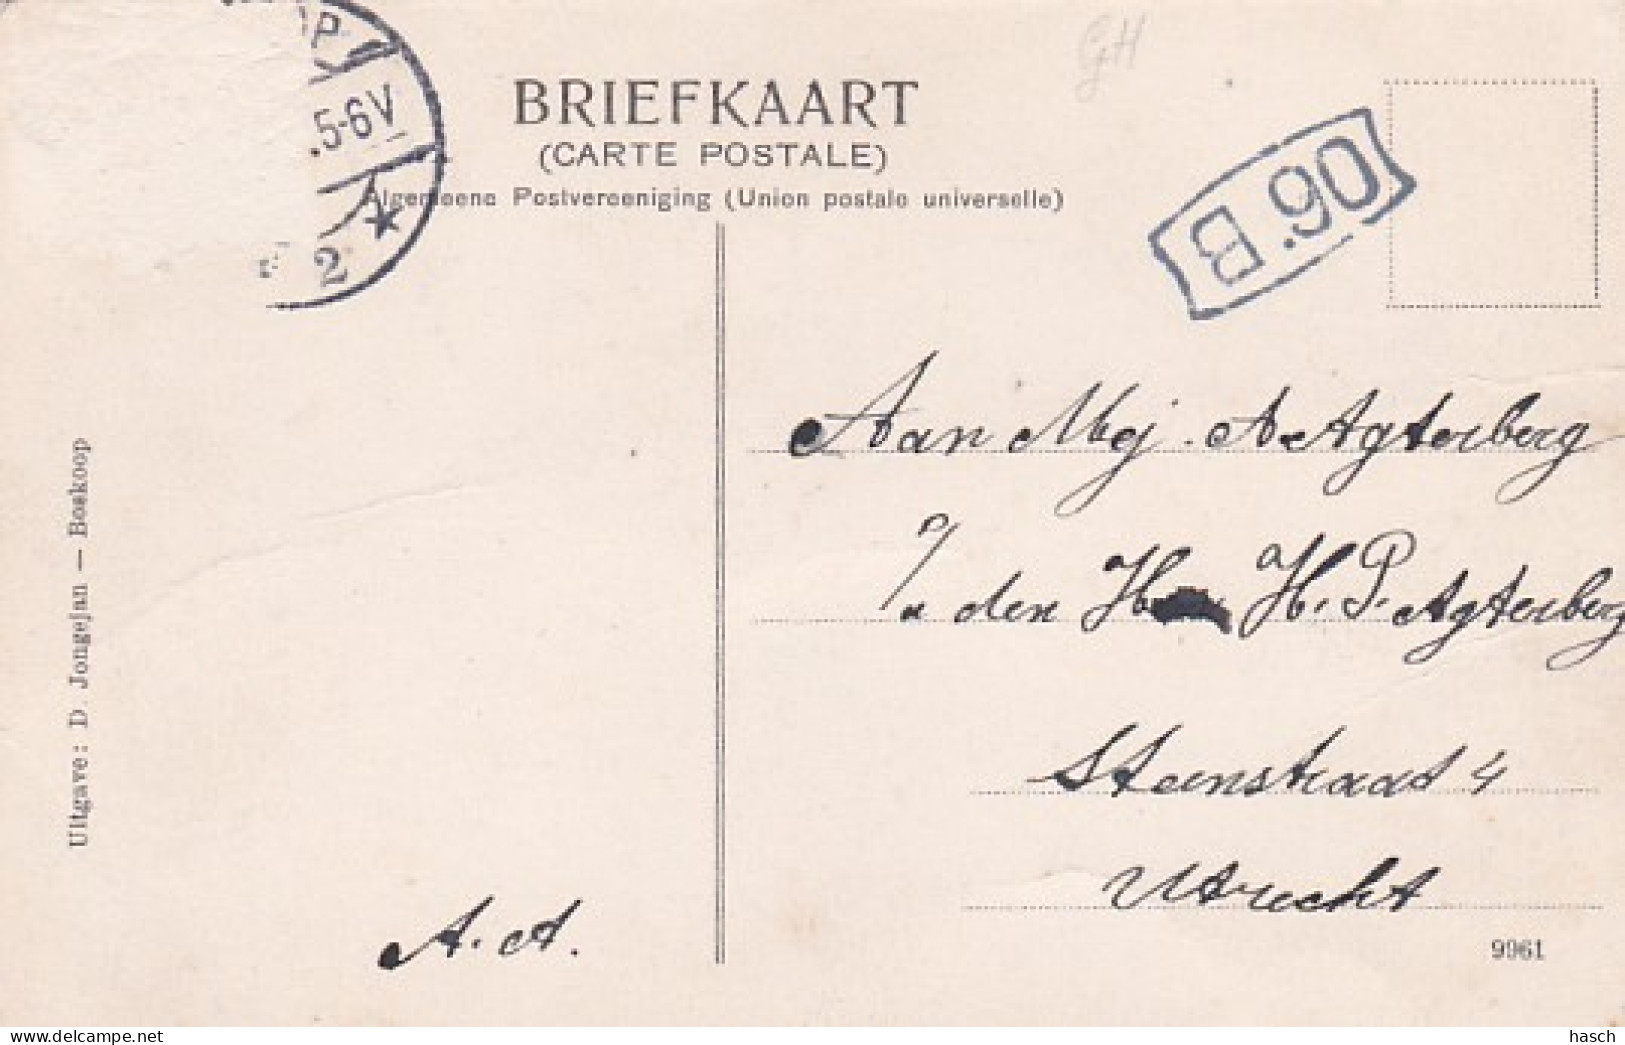 OP
5-6V
2
GH
BRIEFKAART
(CARTE POSTALE)
Algemeene Postvereeniging (Union postale universelle)
B.90
Aan Mej. A. Agterberg
den H. P. Agterberg
Steenstraat 4
Utrecht
A. A.
Uitgave: D. Jongejan — Boskoop
9961
delcampe.net
hasch